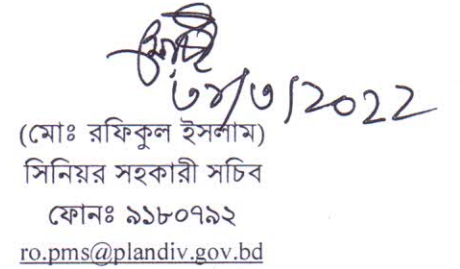 ৩১/৩/2022
(মোঃ রফিকুল ইসলাম)
সিনিয়র সহকারী সচিব
ফোনঃ ৯১৮০৭৯২
ro.pms@plandiv.gov.bd